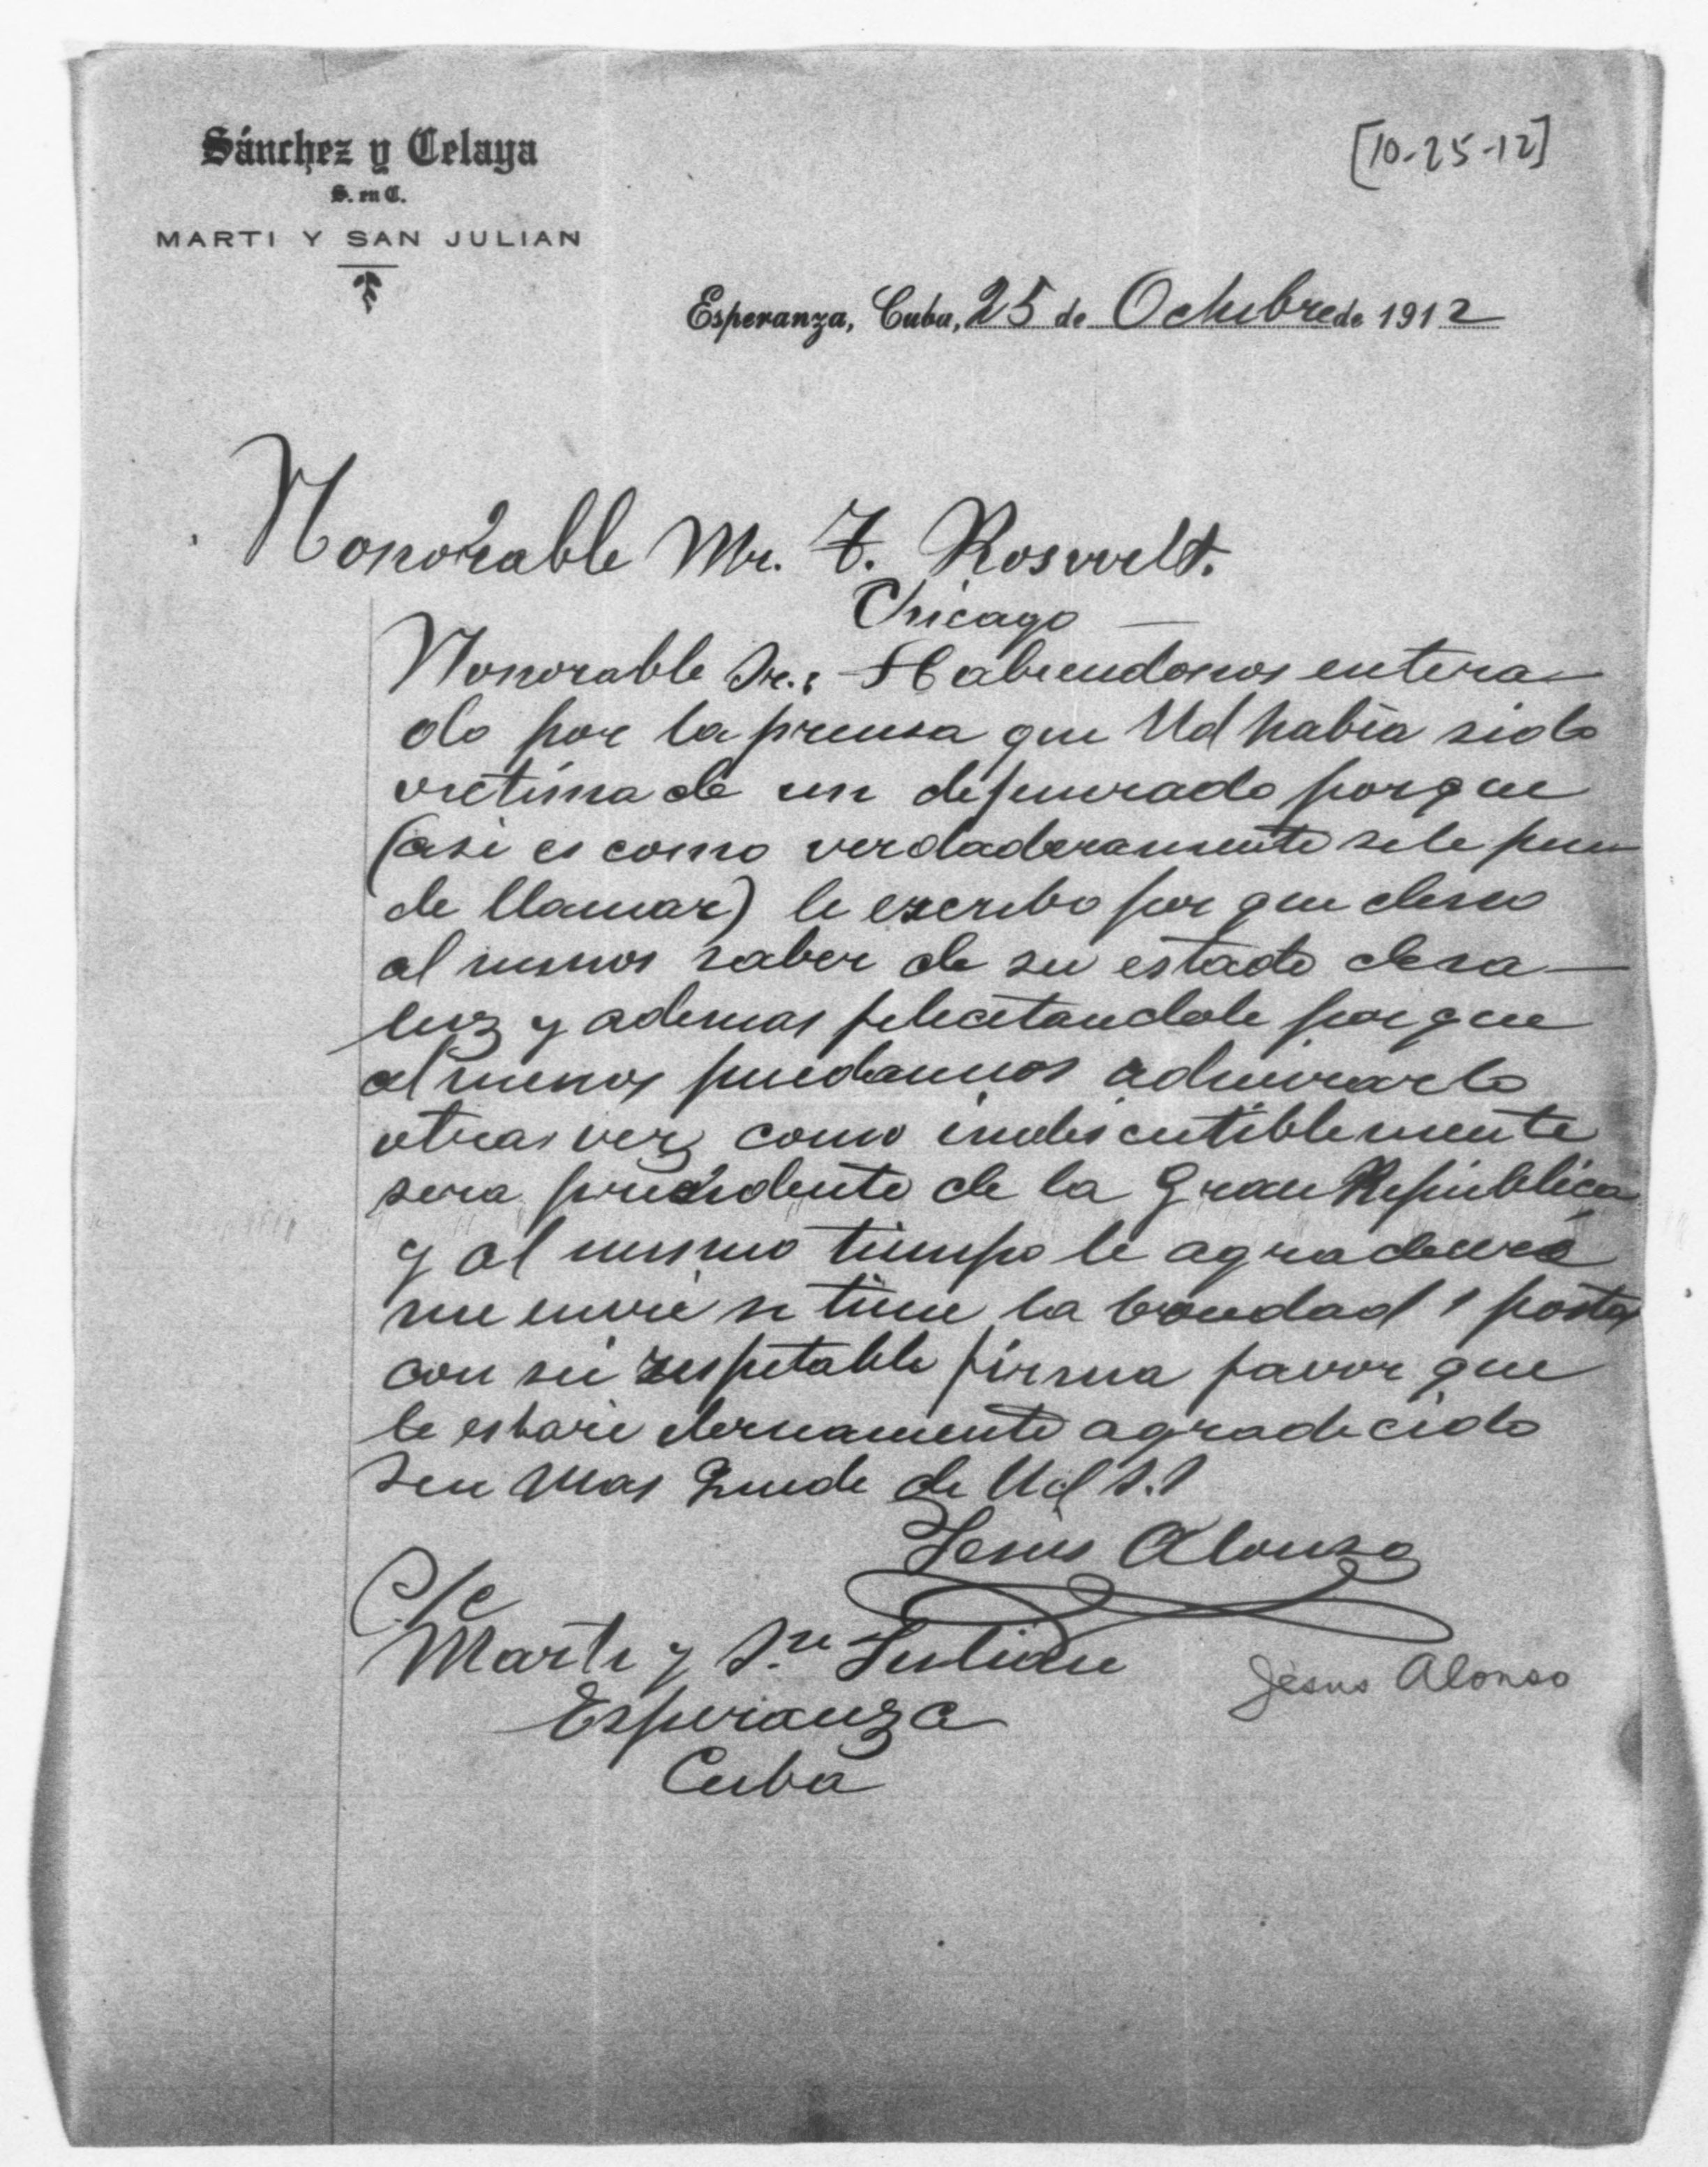 Sánchez y Celaya
S. en C.
MARTI Y SAN JULIAN
[10-25-12]
Esperanza, Cuba, 25 de Octubre de 1912
Honorable Mr. T. Rosvvelt.
Chicago —
Honorable Sr.: Habiendonos entera-
do por la prensa que Ud había sido
victima de un depravado porque
(asi es como verdaderamente se le pue
de llamar) le escribo por que deseo
al menos saber de su estado de sa-
luz y ademas felicitandole porque
al menos puedamos admirarlo
otras vez como indiscutiblemente
sera presidente de la Gran Republica
y al mismo tiempo le agradeceré
me envie si tiene la bondad 1 postal
con su respetable firma favor que
le estaré eternamente agradecido
Sin mas Quede de Ud S.S
Jesús Alonso
S/c
Marti y Sn Julian
Jesus Alonso
Esperanza
Cuba